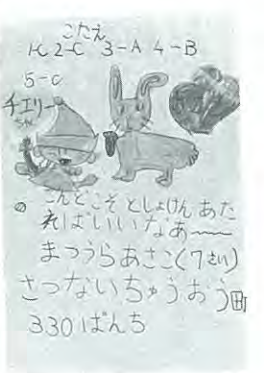 こたえ
1C 2-C 3-A 4-B
5-C
チエリー
ちゃん
のこんどこそ としょけん あた
ればいいなあ〜
まつうらあさこ(7さい)
さっないちゅうおう町
330ばんち